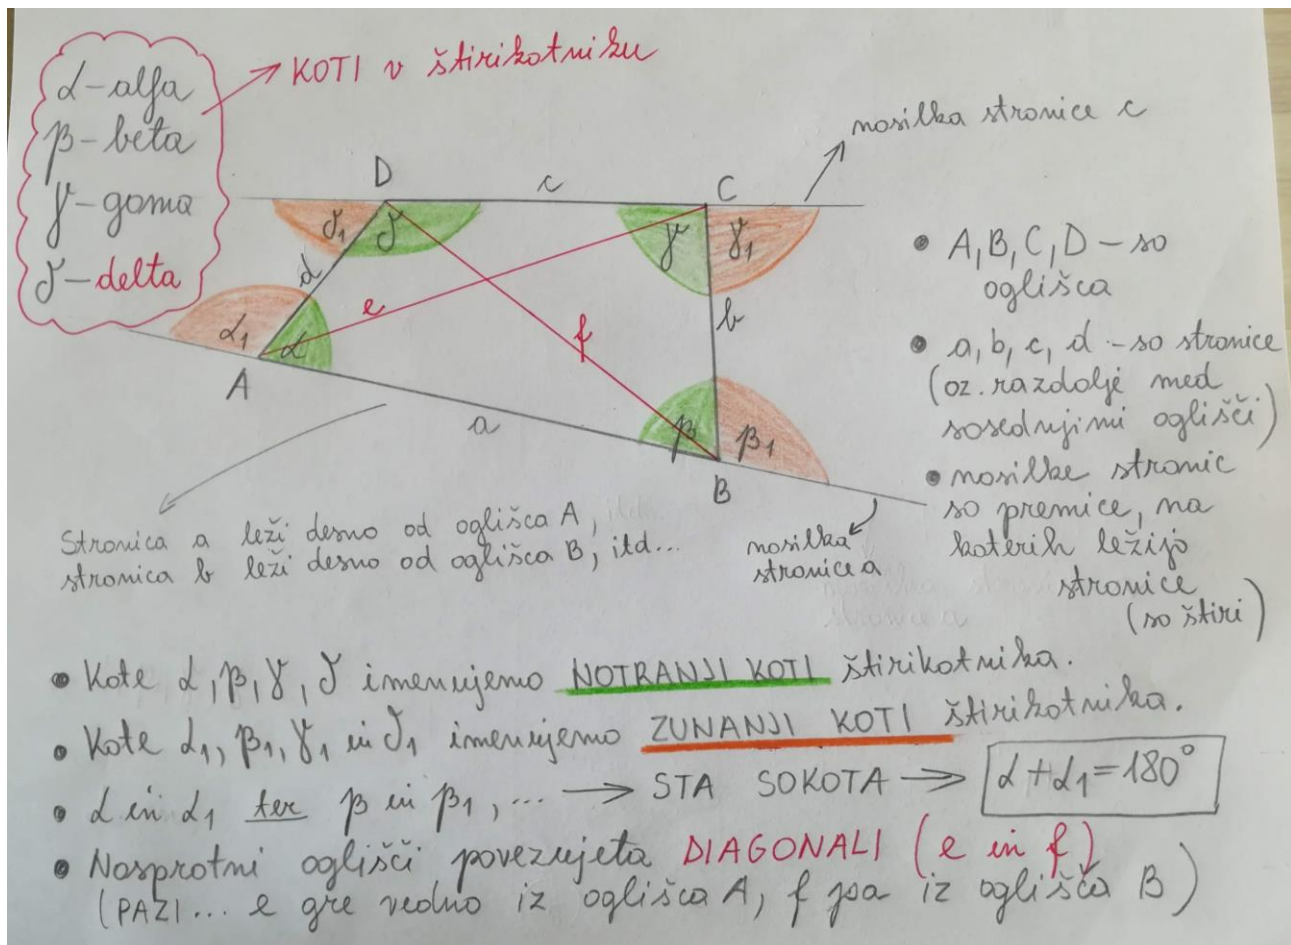 α - alfa
β - beta
γ - gama
δ - delta
KOTI v štirikotniku
nosilka stronice c
D
c
C
δ1
δ
γ
γ1
d
e
f
b
α1
α
A
a
β
β1
B
• A, B, C, D - so
oglišča
• a, b, c, d - so stranice
(oz. razdalje med
sosednjimi oglišči)
• nosilke stranic
so premice, na
katerih ležijo
stranice
(so štiri)
Stranica a leži desno od oglišča A, itd.
stranica b leži desno od oglišča B, itd...
nosilka
stranice a
• Kote α, β, γ, δ imenujemo NOTRANJI KOTI štirikotnika.
• Kote α1, β1, γ1 in δ1 imenujemo ZUNANJI KOTI štirikotnika.
• α in α1 ter β in β1, ... → STA SOKOTA → α + α1 = 180°
• Nasprotni oglišči povezujeta DIAGONALI (e in f)
(PAZI... e gre vedno iz oglišča A, f pa iz oglišča B)